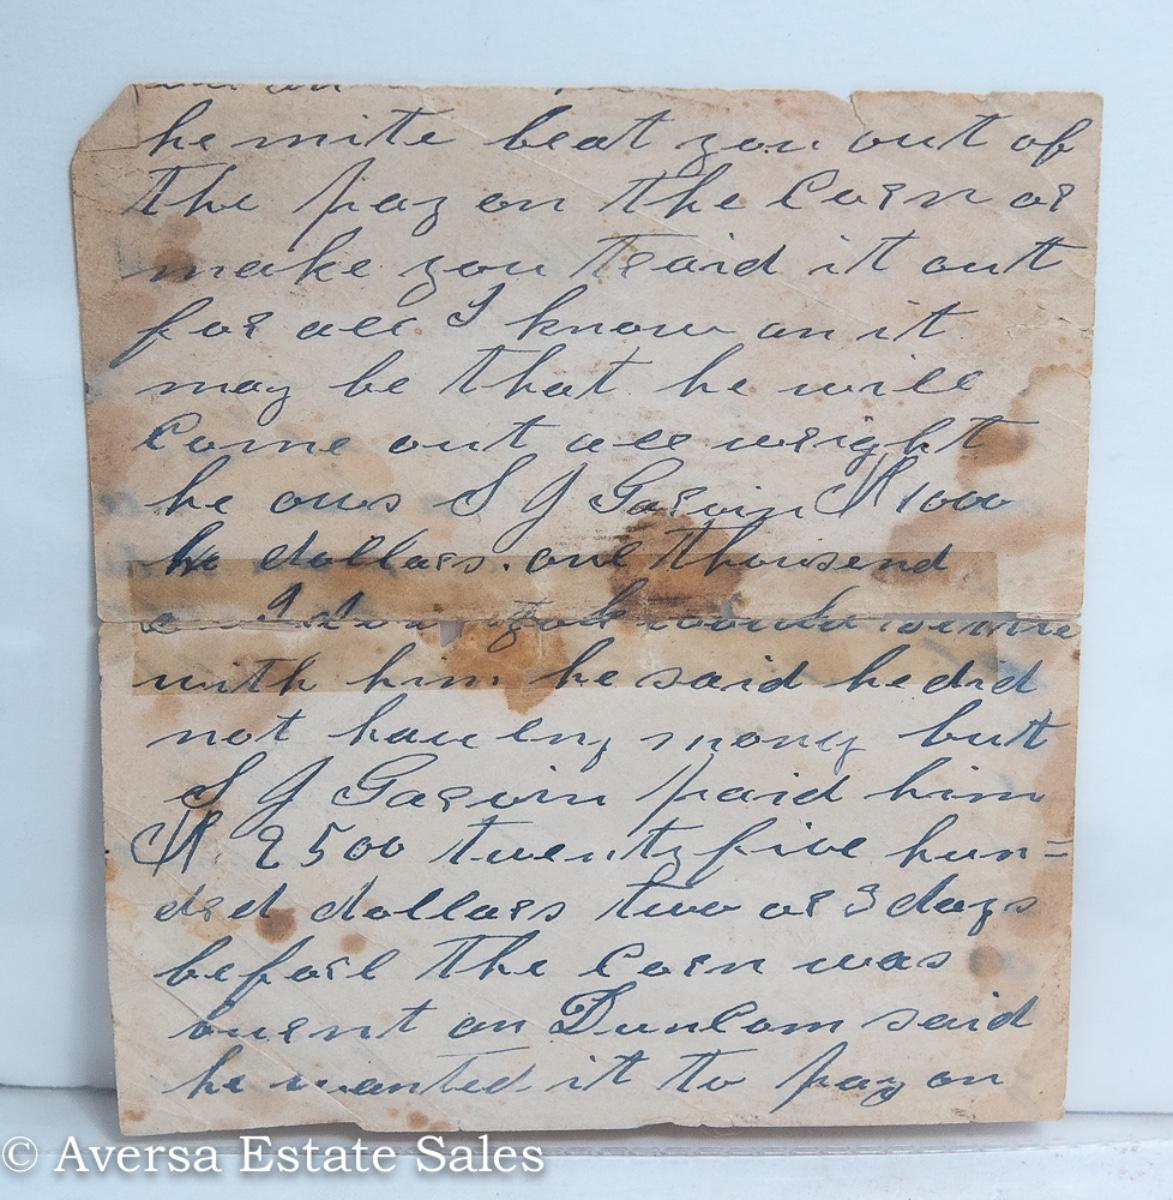 he mite beat you out of
the pay on the Corn or
make you traid it out
for all I know an it
may be that he will
Come out all wright
he ows S J Garvin $1000
dollars. one thousend
with him he said he did
not hav eny mony but
S J Garvin paid him
$2500 twenty five hun=
dred dollars two or 3 days
before the Corn was
burnt an Duncom said
he wanted it to pay on
© Aversa Estate Sales